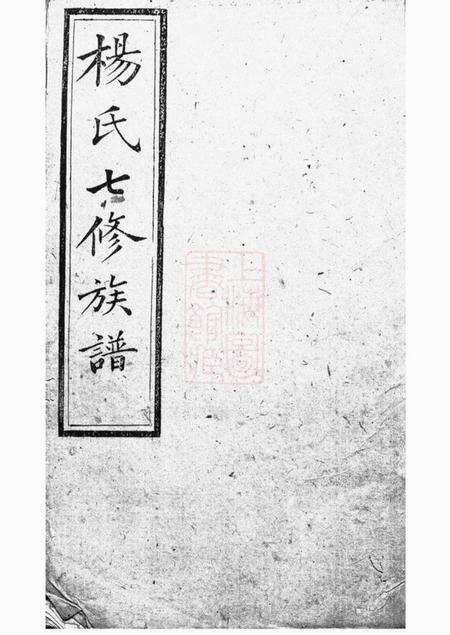 楊氏七修族譜
上海圖
書館藏